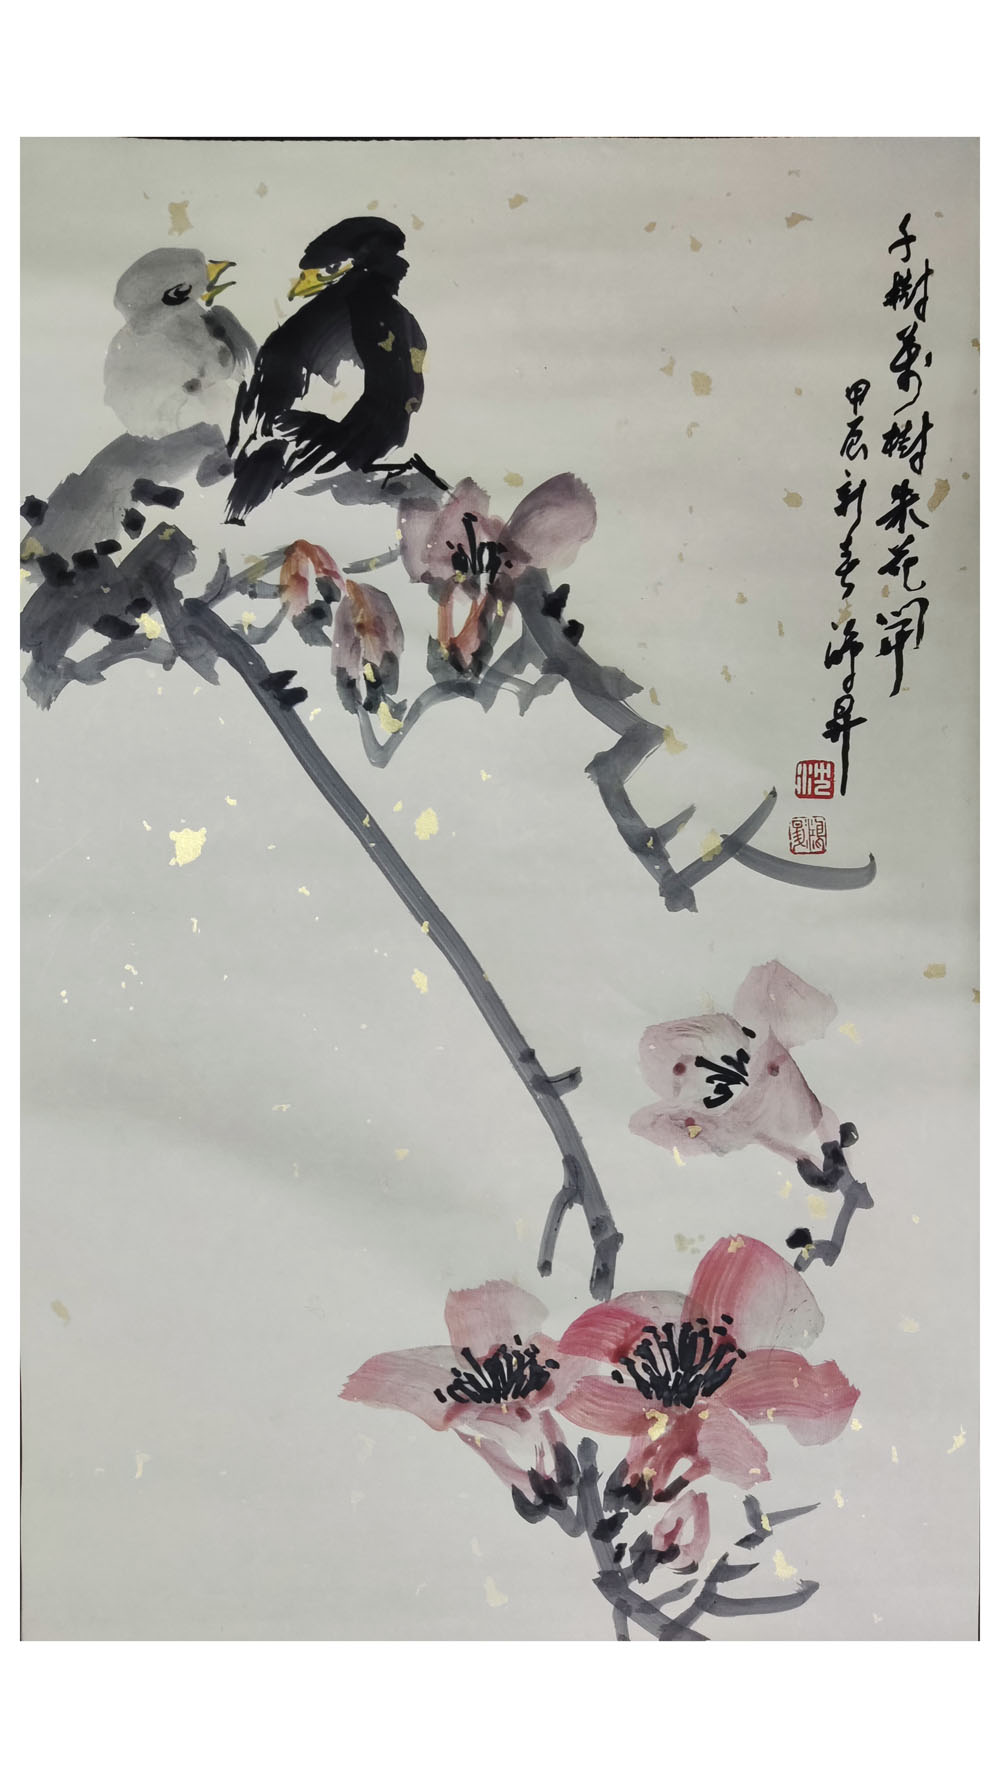 千樹萬樹朱花開
甲辰新春 昇
沈
鴻